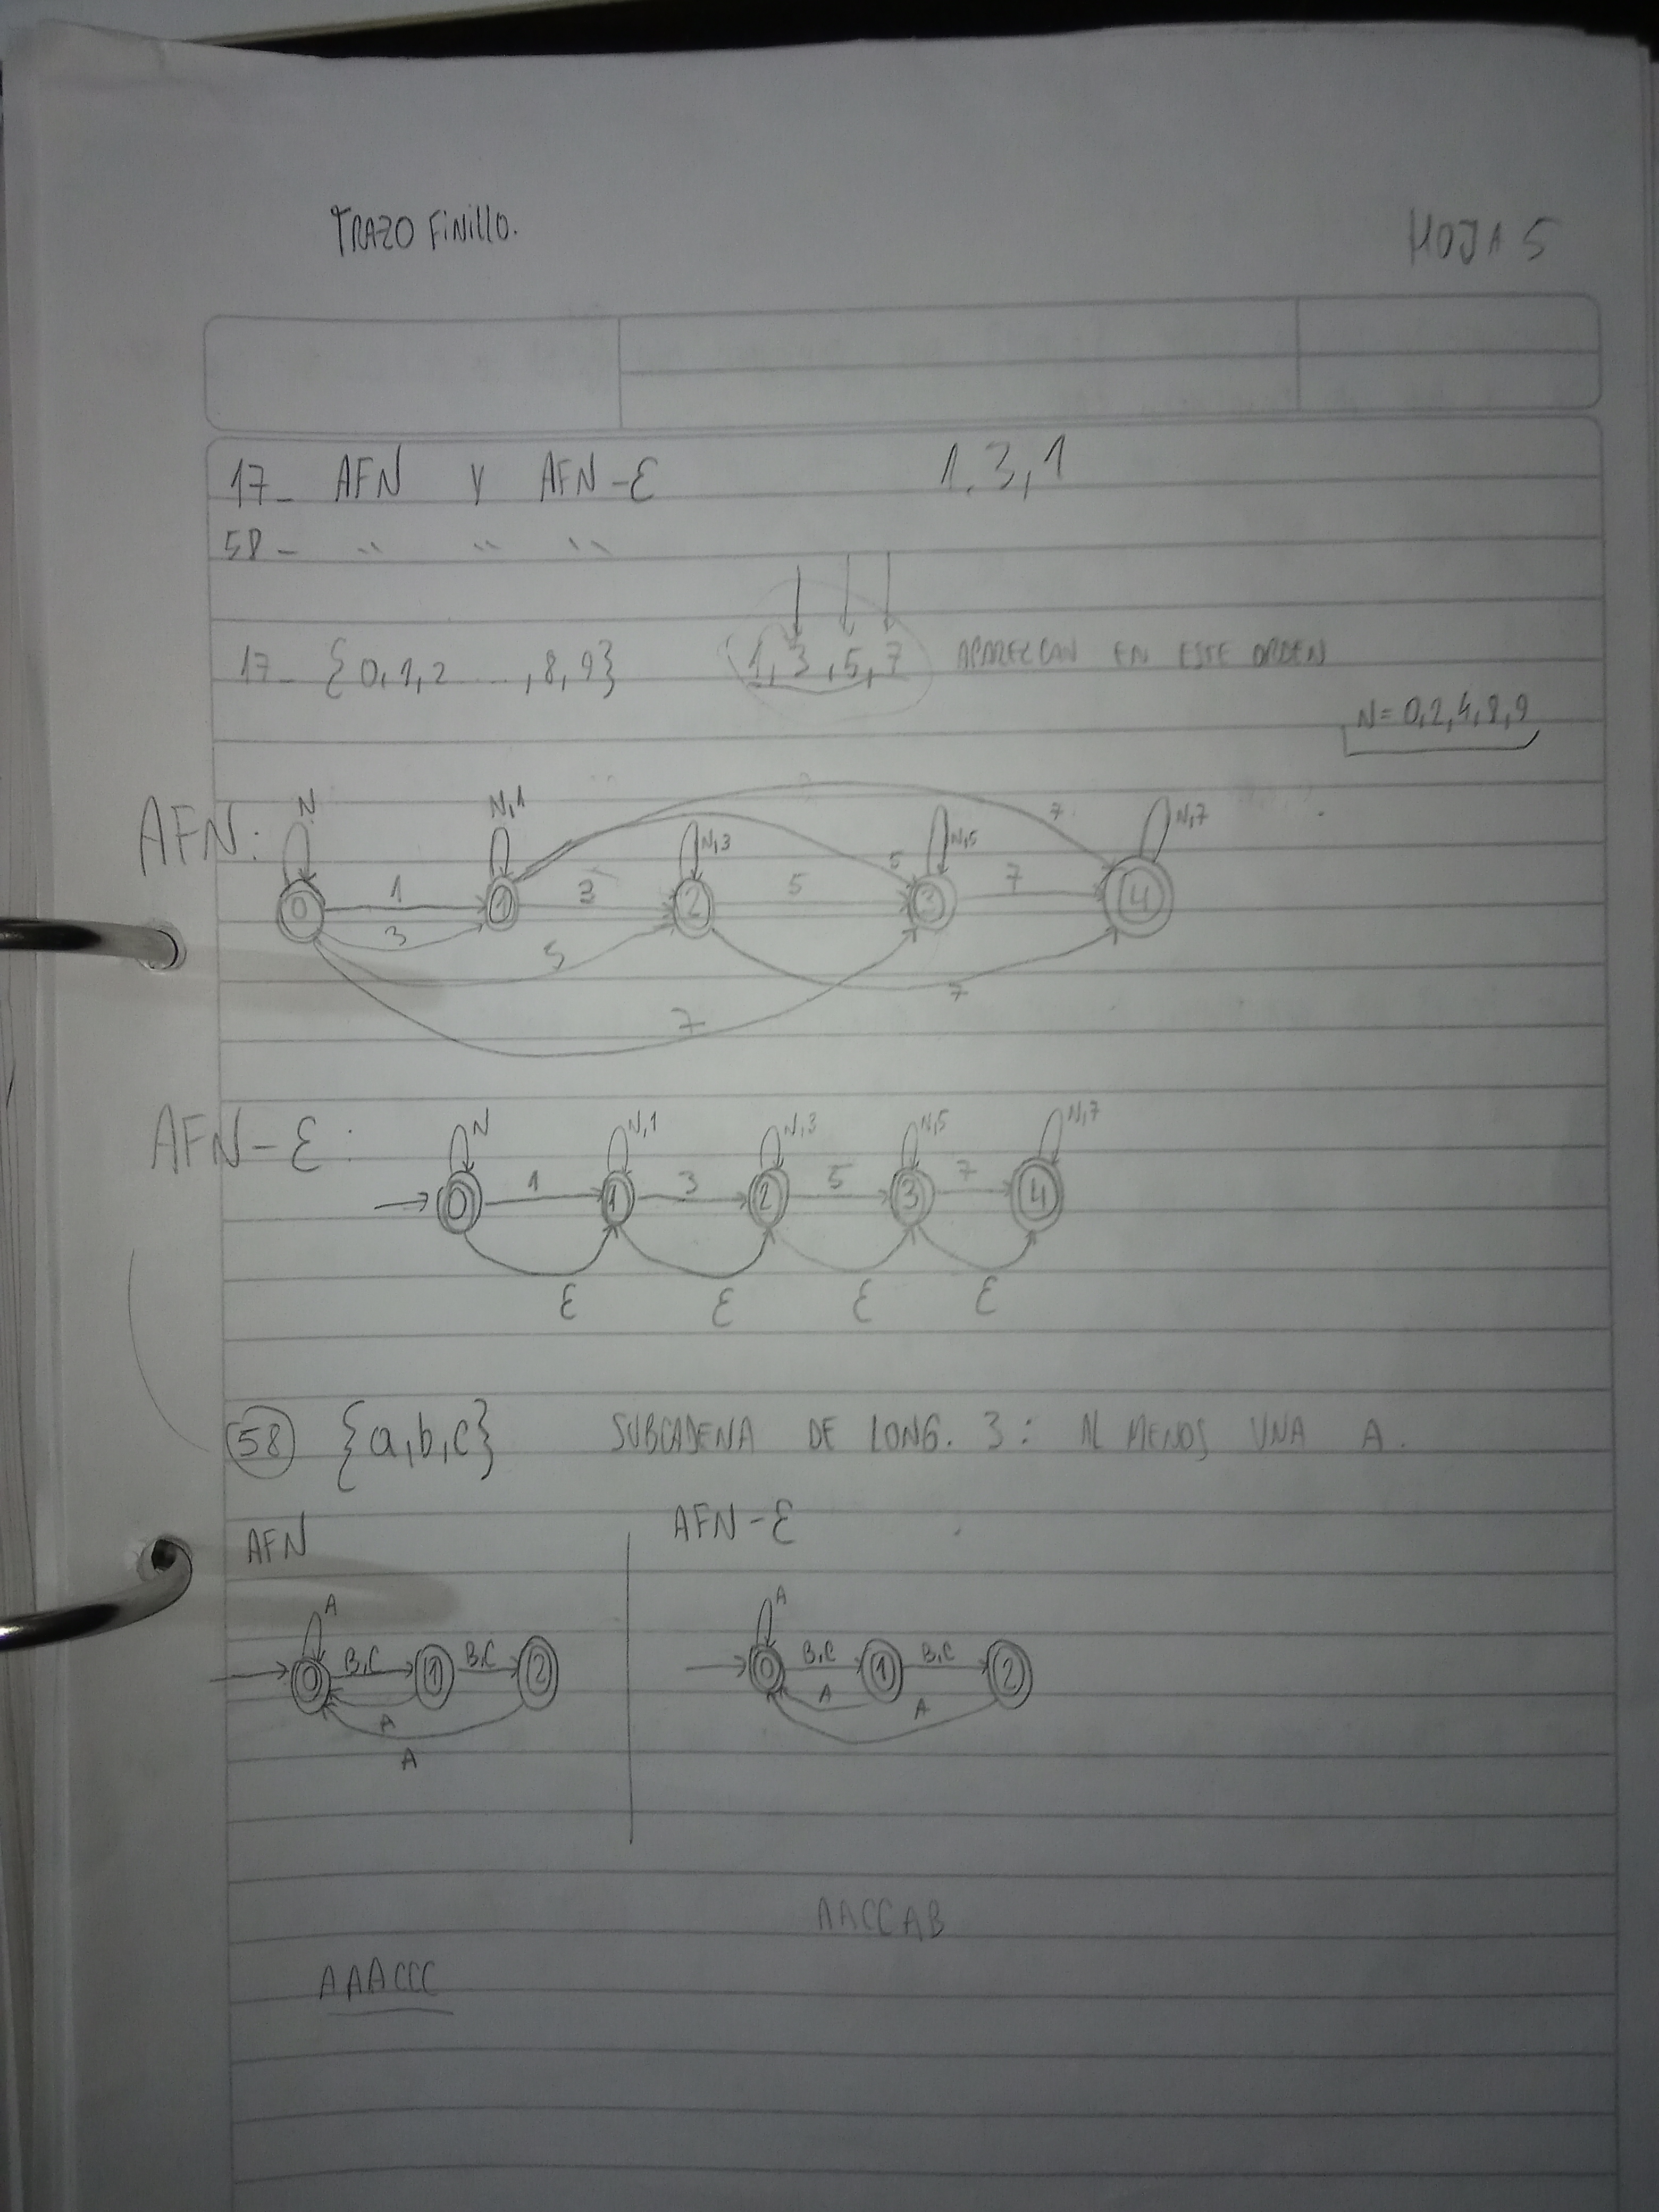 TRAZO FINILLO.
HOJA 5
17- AFN Y AFN-Ɛ 1,3,1
58- " " "
17- {0,1,2...,8,9} 1,3,5,7 APAREZCAN EN ESTE ORDEN
N=0,2,4,8,9
AFN:
N N,1 N,3 N,5 N,7
7
5
1 3 5 7
0 1 2 3 4
3 5 7
7
AFN-Ɛ:
N N,1 N,3 N,5 N,7
1 3 5 7
0 1 2 3 4
Ɛ Ɛ Ɛ Ɛ
58 {a,b,c} SUBCADENA DE LONG. 3: AL MENOS UNA A.
AFN
A
B,C B,C
0 1 2
A
A
AFN-Ɛ
A
B,C B,C
0 1 2
A A
AACCAB
AAACCC